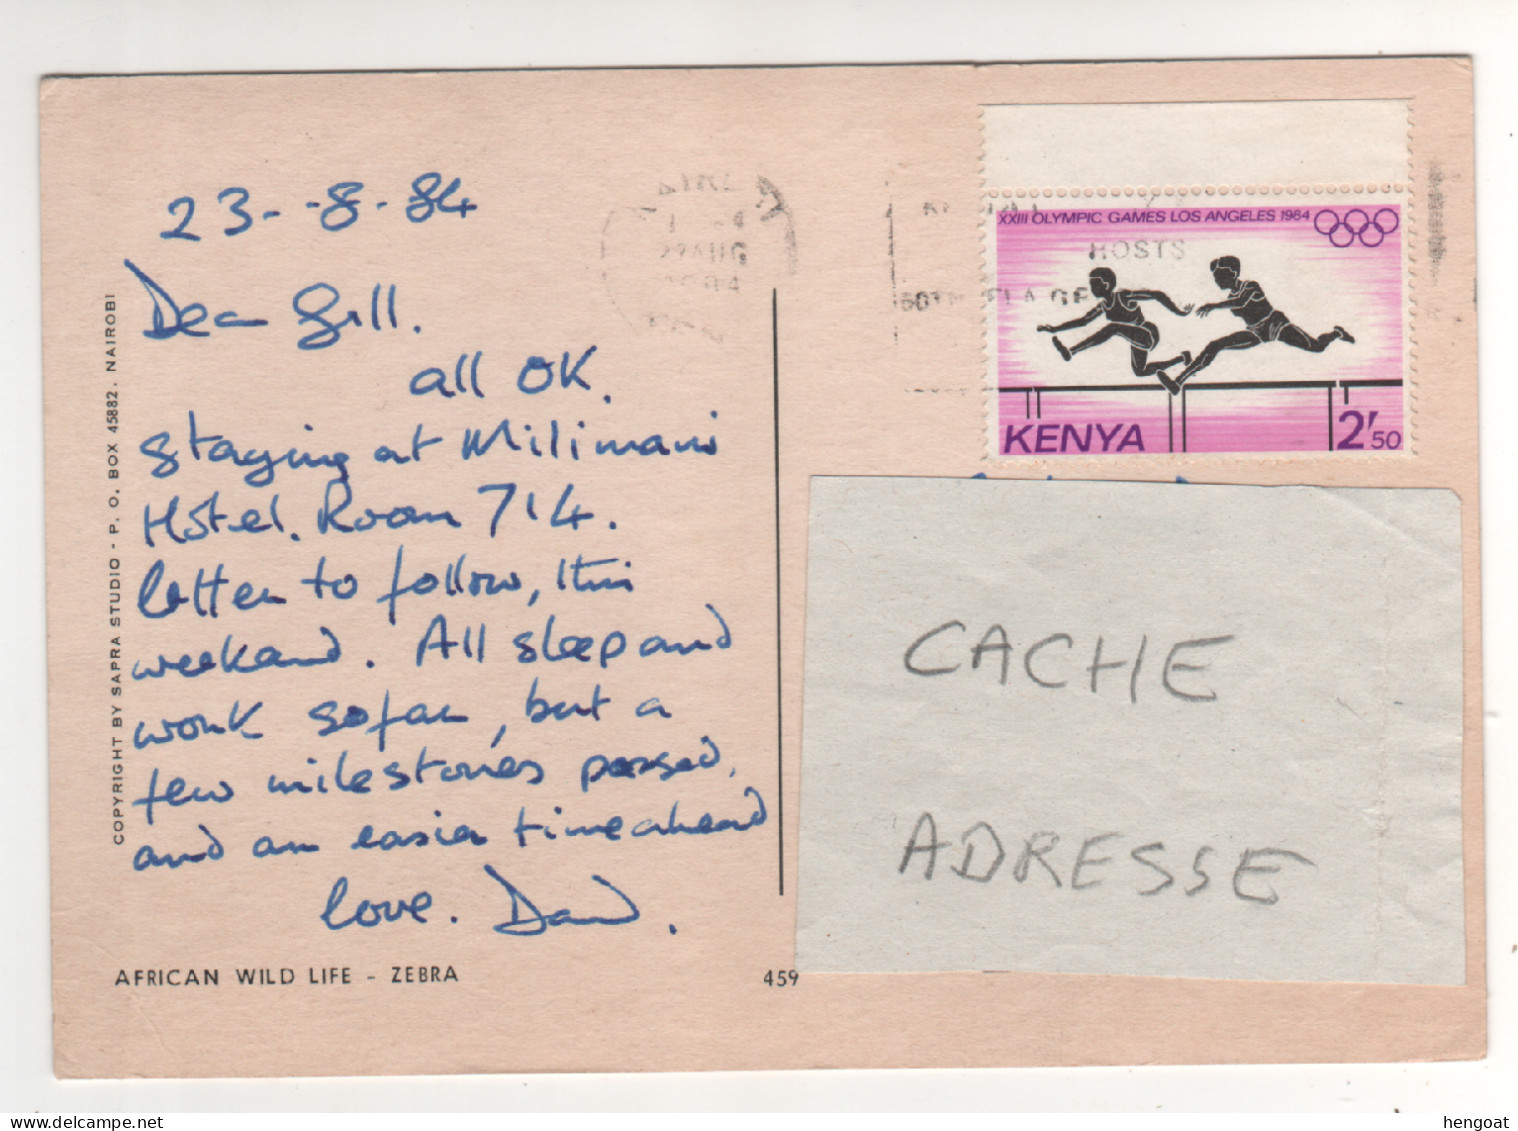 23-8-84
Dear Gill.
all OK.
staying at Milimani
Hotel. Room 714.
letter to follow, this
weekend. All sleep and
work sofar, but a
few milestones passed,
and an easier time ahead
love. David.
COPYRIGHT BY SAPRA STUDIO - P. O. BOX 45882, NAIROBI
AFRICAN WILD LIFE - ZEBRA
459
XXIII OLYMPIC GAMES LOS ANGELES 1984
HOSTS
KENYA
2/50
CACHE
ADRESSE
hengoat